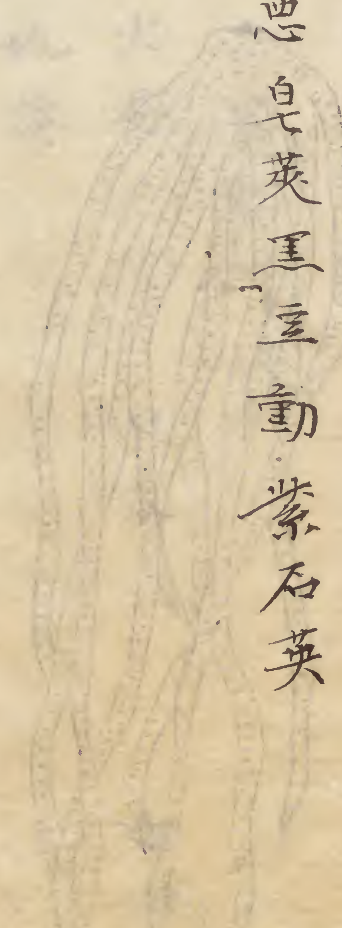 皂莢黑豆動紫石英